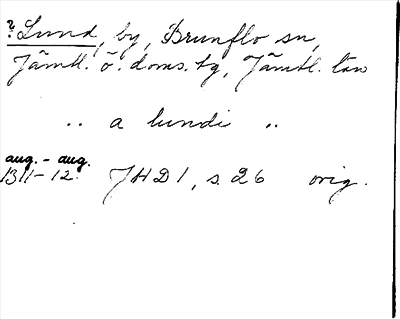 ? Lund, by, Brunflo sn,
Jämtl. ö. doms. tg, Jämtl. län
.. a lundi ..
aug. - aug.
1311-12. JHD 1, s. 26 orig.